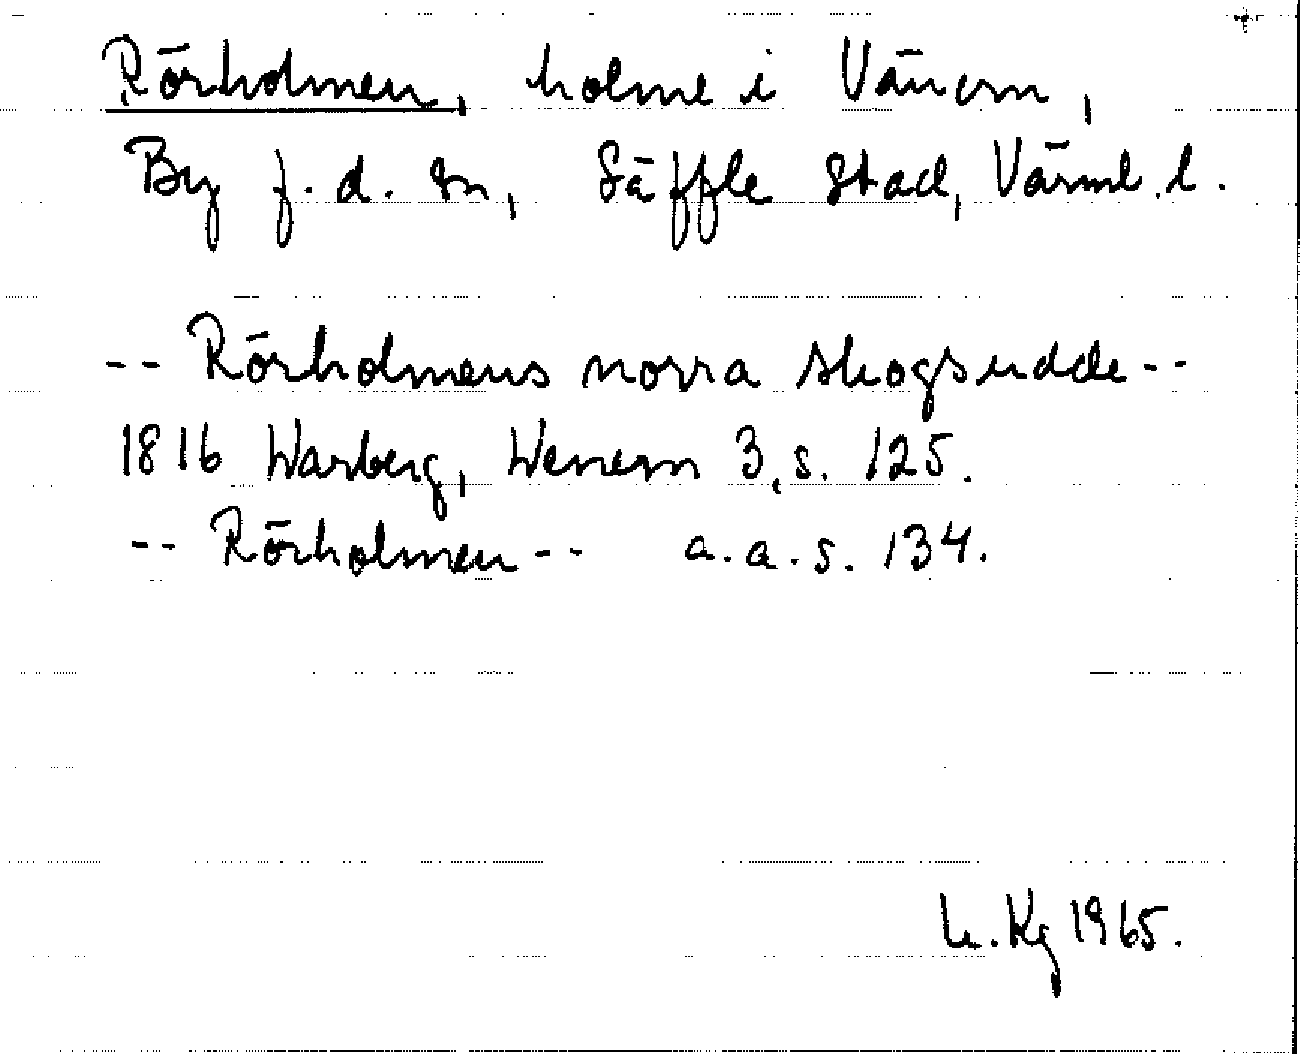 Rörholmen, holme i Vänern,
By f.d. sn, Säffle stad, Värml. l.
-- Rörholmens norra skogsudde --
1816 Warberg, Wenern 3, s. 125.
-- Rörholmen -- a.a.s. 134.
Kg 1965.